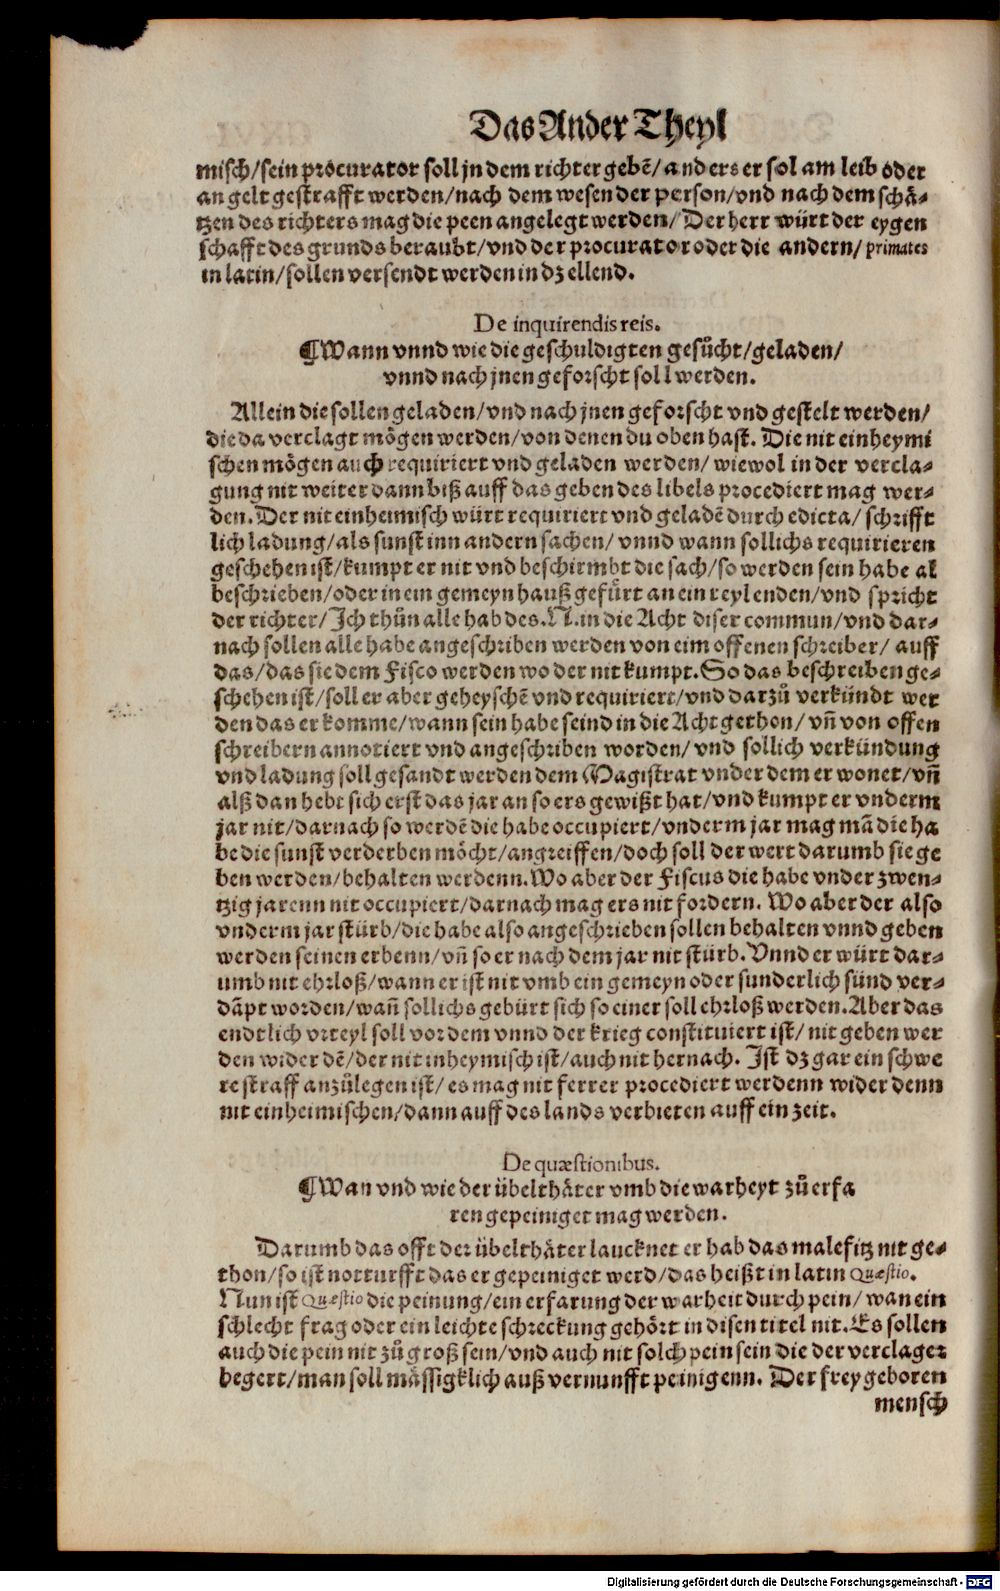 Das Ander Theyl
misch/sein procurator soll jn dem richter gebẽ/anders er sol am leib oder
an gelt gestrafft werden/nach dem wesen der person/vnd nach dem schä⸗
tzen des richters mag die peen angelegt werden/Der herr würt der eygen
schafft des grunds beraubt/vnd der procurator oder die andern/primates
in latin/sollen versendt werden in dz ellend.
De inquirendis reis.
¶Wann vnnd wie die geschuldigten gesůcht/geladen/
vnnd nach jnen geforscht soll werden.
Allein die sollen geladen/vnd nach jnen geforscht vnd gestelt werden/
die da verclagt mögen werden/von denen du oben hast. Die nit einheymi
schen mögen auch requiriert vnd geladen werden/wiewol in der vercla⸗
gung nit weiter dann biß auff das geben des libels procediert mag wer⸗
den. Der nit einheimisch würt requiriert vnd geladẽ durch edicta/schrifft
lich ladung/als sunst inn andern sachen/vnnd wann sollichs requirieren
geschehen ist/kumpt er nit vnd beschirmbt die sach/so werden sein habe al
beschrieben/oder in ein gemeyn hauß gefůrt an ein reylenden/vnd spricht
der richter/Ich thůn alle hab des. N. in die Acht diser commun/vnd dar⸗
nach sollen alle habe angeschriben werden von eim offenen schreiber/auff
das/das sie dem Fisco werden wo der nit kumpt. So das beschreiben ge⸗
schehen ist/soll er aber geheyschẽ vnd requiriert/vnd darzů verkündt wer
den das er komme/wann sein habe seind in die Acht gethon/vñ von offen
schreibern annotiert vnd angeschriben worden/vnd sollich verkündung
vnd ladung soll gesandt werden dem Magistrat vnder dem er wonet/vñ
alß dan hebt sich erst das jar an so ers gewißt hat/vnd kumpt er vnderm
jar nit/darnach so werdẽ die habe occupiert/vnderm jar mag mã die ha
be die sunst verderben möcht/angreiffen/doch soll der wert darumb sie ge
ben werden/behalten werdenn. Wo aber der Fiscus die habe vnder zwen⸗
tzig jarenn nit occupiert/darnach mag ers nit fordern. Wo aber der also
vnderm jar stürb/die habe also angeschrieben sollen behalten vnnd geben
werden seinen erbenn/vñ so er nach dem jar nit stürb. Vnnd er würt dar⸗
umb nit ehrloß/wann er ist nit vmb ein gemeyn oder sunderlich sünd ver⸗
dãpt worden/wañ sollichs gebürt sich so einer soll ehrloß werden. Aber das
endtlich vrteyl soll vor dem vnnd der krieg constituiert ist/nit geben wer
den wider dẽ/der nit inheymisch ist/auch nit hernach. Ist dz gar ein schwe
re straff anzůlegen ist/es mag nit ferrer procediert werdenn wider denn
nit einheimischen/dann auff des lands verbieten auff ein zeit.
De quæstionibus.
¶Wan vnd wie der übelthäter vmb die warheyt zů erfa
ren gepeiniget mag werden.
Darumb das offt der übelthäter laucknet er hab das malefitz nit ge⸗
thon/so ist notturfft das er gepeiniget werd/das heißt in latin Quæstio.
Nun ist Quæstio die peinung/ein erfarung der warheit durch pein/wan ein
schlecht frag oder ein leichte schreckung gehört in disen titel nit. Es sollen
auch die pein nit zů groß sein/vnd auch nit solch pein sein die der verclager
begert/man soll mässigklich auß vernunfft peinigenn. Der frey geboren
mensch
Digitalisierung gefördert durch die Deutsche Forschungsgemeinschaft - DFG